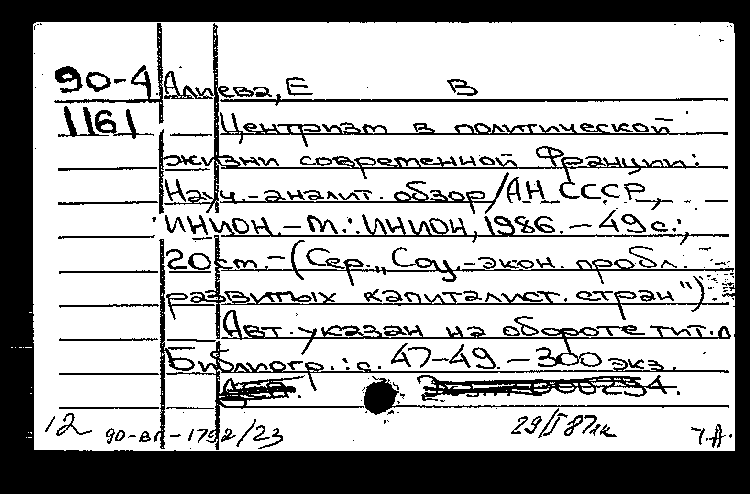 90-4 Алиева, Е В
1161 Центризм в политической
жизни современной Франции:
Науч.-аналит. обзор/АН СССР,
ИНИОН.-М.: ИНИОН, 1986.-49 с.;
20 см.-(Сер. „Соц.-экон. пробл.
развитых капиталист. стран").
Авт. указан на обороте тит. л.
Библиогр.: с. 47-49.-300 экз.
12 90-вл-1792/23 29/I 87